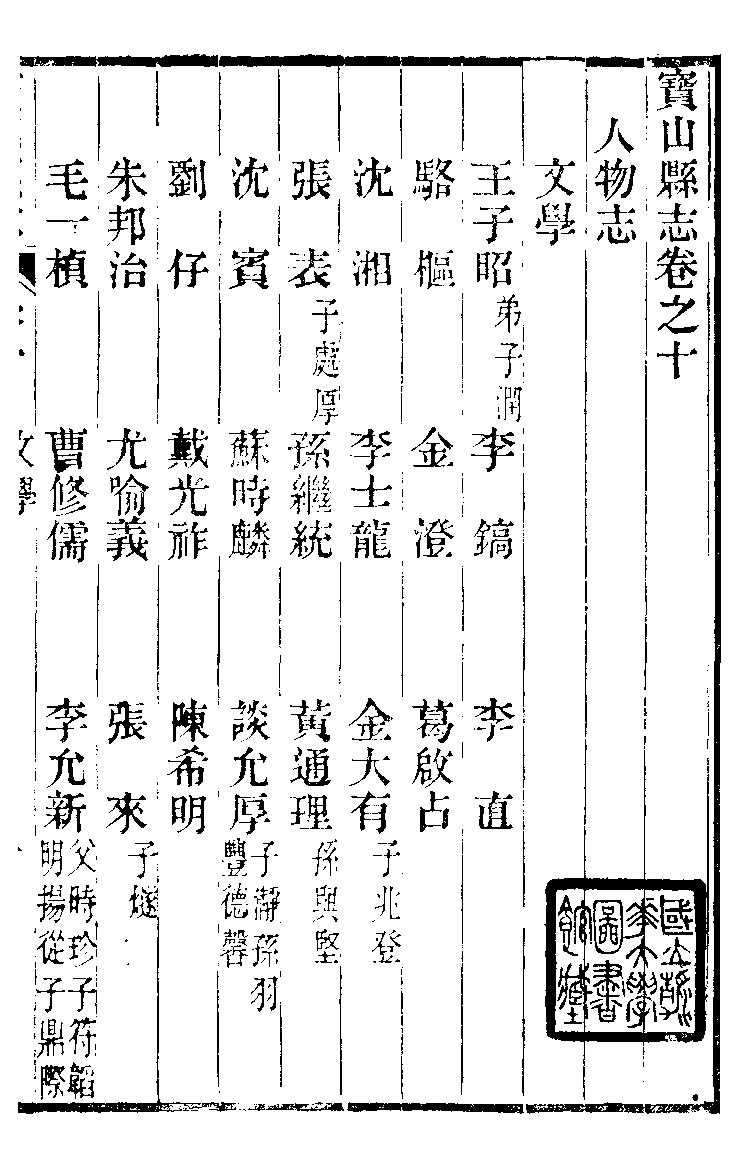 寶山縣志卷之十
人物志
文學
王子昭 弟子潤 李鎬 李直
駱樞 金澄 葛啟占
沈湘 李士龍 金大有 子兆登
張表 子處厚 孫繼統 黃通理 孫與堅
沈賓 蘇時麟 談允厚 子瀞孫羽豐德馨
劉仔 戴光祚 陳希明
朱邦治 尤喻義 張來 子燧
毛一楨 曹修儒 李允新 父時珍子符韜明揚從子鼎際
文學
國立清華大學圖書館藏